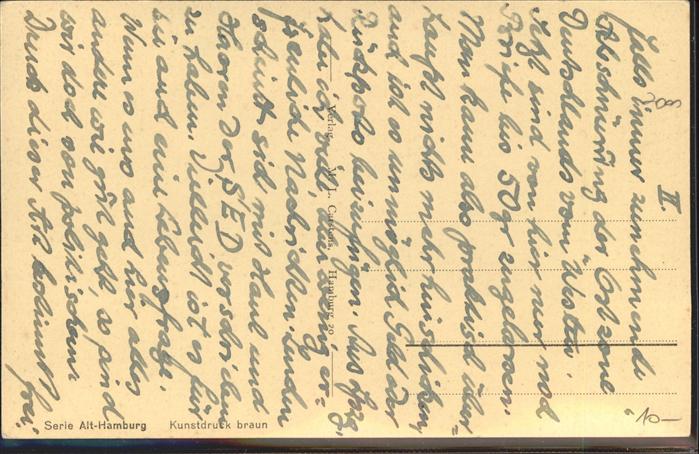 II.
falls immer zunehmende
Abschnürung der Ostzone
Deutschlands vom Westen.
Jetzt sind von hier nur noch
Briefe bis 50 gr zugelassen.
Man kann also praktisch über-
haupt nichts mehr hinschicken
und ist es unmöglich Geld oder
Rückporto beizufügen. Aus
habe ich auch, aber wenig er-
freuliche Nachrichten. Linden
scheint sich mit Haut und
Haaren der SED verschrieben
zu haben. Vielleicht ist es für
sie auch eine Lebensfrage.
Wenn es uns auch hier alles
andere wie gut geht, so sind
wir doch von politischem
Druck dieser Art bestimmt frei.
Verlag M. L. Carstens, Hamburg 20
Serie Alt-Hamburg Kunstdruck braun
10-